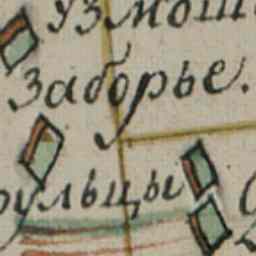 Узмош
Заборье.
ульцы